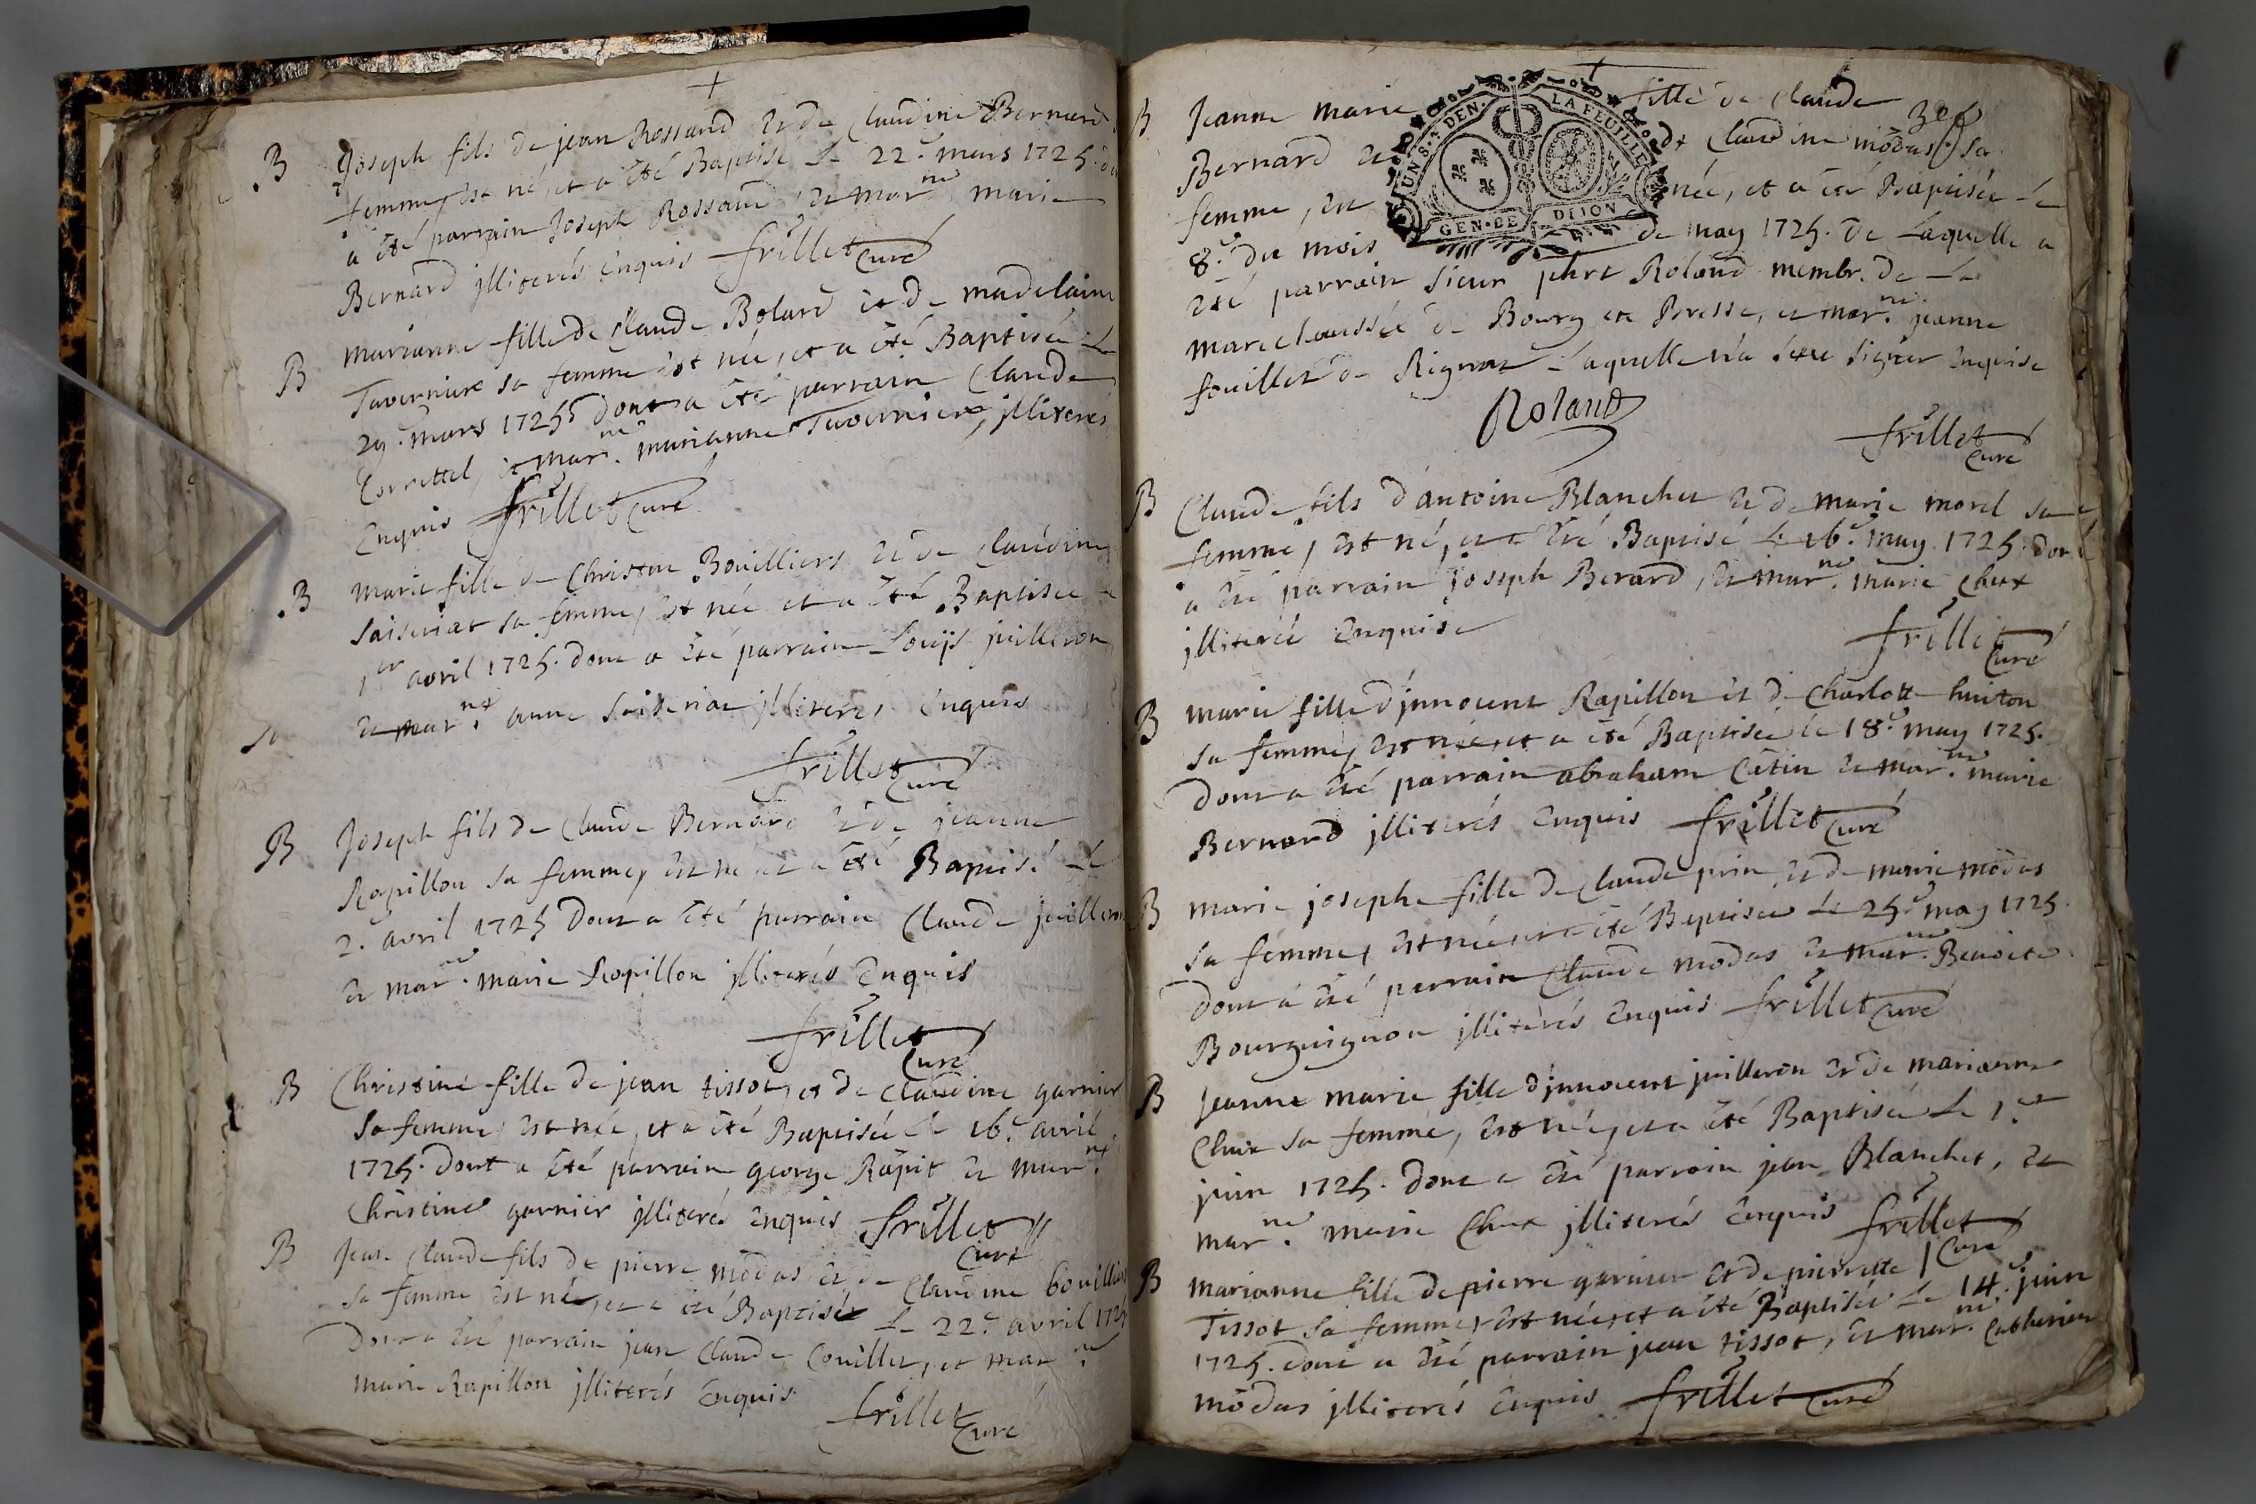 +
B Joseph fils de jean Rossand et de Claudine Bernard
femme, est né, et a été Baptisé le 22.e mars 1725. du
a été parrain Joseph Rossand, et mar.ne marie
Bernard jlliterés Enquis frillet Curé
B marianne fille de Claude Bolard et de madelaine
Tavernier sa femme est née, et a été Baptisée le
29.e mars 1725 dont a été parrain Claude
et mar.ne marianne Tavernier, jlliterés
Enquis frillet Curé
B marie fille de Christin Bouilliers et de Claudine
Saiseriat sa femme, est née et a été Baptisée le
1er avril 1725. dont a été parrain Louÿs juilleron
et mar.ne anne Saiseriat jlliterés Enquis
frillet Curé
B Joseph fils de Claude Bernard et de jeanne
Rapillon sa femme, est né et a été Baptisé le
2.e avril 1725 dont a été parrain Claude juilleron
et mar.ne marie Rapillon jlliterés Enquis
frillet
Curé
B Christine fille de jean tissot, et de Claudine garnier
sa femme, est née, et a été Baptisée le 16.e avril
1725. dont a été parrain george Rapit et mar.ne
Christine garnier jlliterés enquis frillet
Curé
B Jean Claude fils de pierre modas et de Claudine bouillier
sa femme est né, et a été Baptisé le 22.e avril 1725
dont a été parrain jean Claude Couillet, et mar.ne
marie Rapillon jlliterés Enquis
frillet
Curé
+
B Jeanne marie fille de Claude
Bernard et de Claudine modas sa
femme, est née, et a été Baptisée le
8.e du mois de may 1725. de Laquelle a
été parrain sieur Roland membr. de La
marechaussée de Bourg en Bresse, et mar.ne jeanne
fouillet de Rignat Laquelle n'a sceu signer enquise
UN S.4 DEN. LA FEUILLE
GEN. DE DIJON
Roland
frillet
Curé
B Claude fils d'antoine Blanchet et de marie morel sa
femme, est né, et a été Baptisé le 16.e may 1725. dont
a été parrain joseph Berard, et mar.ne marie Chux
jlliterée Enquise
frillet
Curé
B marie fille d'jnnocent Rapillon et de Charlotte huiton
sa femme, est née, et a été Baptisée le 18.e may 1725.
dont a été parrain abraham Cêtin et mar.ne marie
Bernard jlliterés Enquis frillet Curé
B marie josephe fille de Claude prin et de marie modas
sa femme, est née et a été Baptisée le 25.e may 1725.
dont a été parrain Claude modas et mar.ne Benoite
Bourguignon jlliterés Enquis frillet Curé
B jeanne marie fille d'jnnocent juilleron et de marianne
Chux sa femme, est née, et a été Baptisée le 1.er
juin 1725. dont a été parrain jean Blanchet, et
mar.ne marie Chux jlliterés Enquis frillet
Curé
B marianne fille de pierre garnier et de pierrette
Tissot sa femme, est née, et a été Baptisée le 14.e juin
1725. dont a été parrain jean tissot, et mar.ne Catherine
modas jlliterés Enquis frillet Curé